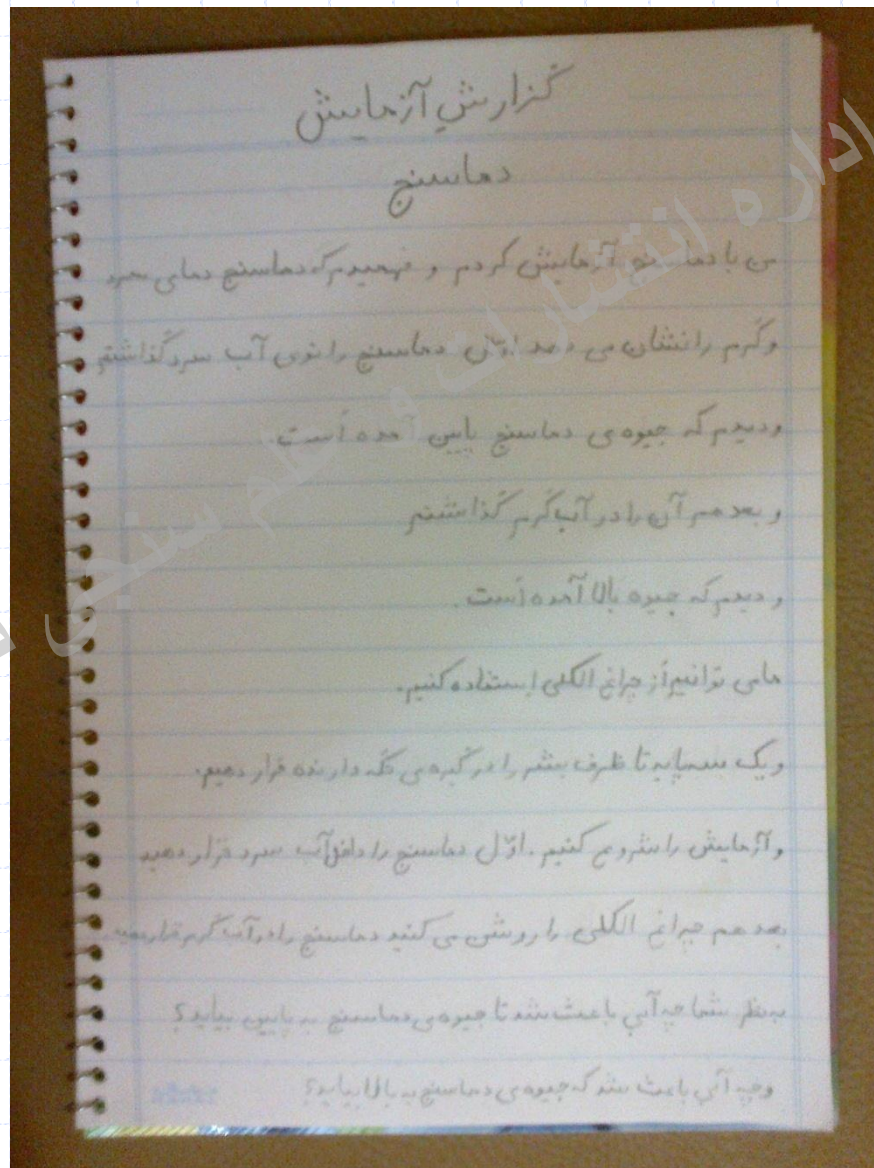 گزارش آزمایش
دماسنج
من با دماسنج آزمایش کردم و فهمیدم که دماسنج دمای سرد
و گرم را نشان می دهد اوّل دماسنج را توی آب سرد گذاشتم
و دیدم که جیوه ی دماسنج پایین آمده است.
و بعد هم آن را در آب گرم گذاشتم
و دیدم که جیوه بالا آمده است.
ما می توانیم از چراغ الکلی استفاده کنیم.
و یک سه پایه تا ظرف بشر را در گیره ی نگه دارنده قرار دهیم.
و آزمایش را شروع کنیم. اوّل دماسنج را داخل آب سرد قرار دهید
بعد هم چراغ الکلی را روشن می کنید دماسنج را در آب گرم قرار دهید
به نظر شما چه آبی باعث شد تا جیوه ی دماسنج به پایین بیاید؟
و چه آبی باعث شد که جیوه ی دماسنج به بالا بیاید؟
اداره انتشارات و علم سنجی